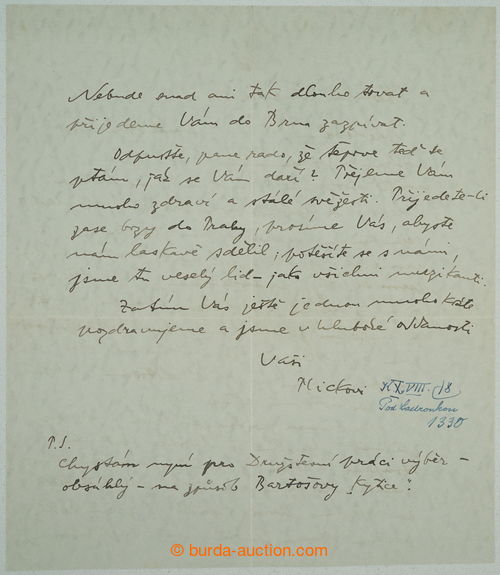 Nebude snad ani tak dlouho trvat a
přijedeme Vám do Brna zazpívat.
Odpusťte, pane rado, že teprve teď se
ptám, jak se Vám daří? Přejeme Vám
mnoho zdraví a stálé svěžesti. Přijedete-li
zase brzy do Prahy, prosíme Vás, abyste
nám laskavě sdělil, potěšíte se s námi,
jsme tu veselý lid – jako všichni muzikanti.
Zatím Vás ještě jednou mnohokrát
pozdravujeme a jsme v hluboké oddanosti
Vaši
Plickovi
XVIII. 
Pod Ladronkou
1330
P.S.
Chystám nyní pro Družstevní práci výběr –
obsáhlý – na způsob Bartošovy „Kytice".
© burda-auction.com